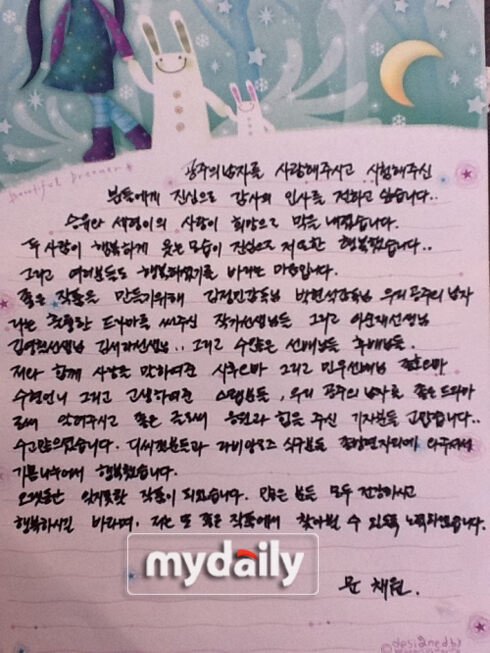 beautiful dreamer
공주의남자를 사랑해주시고 시청해주신
분들에게 진심으로 감사의 인사를 전하고 싶습니다..
승유와 세령이의 사랑이 희망으로 막을 내렸습니다.
두 사람이 행복하게 웃는 모습이 진심으로 저또한 행복했습니다..
그리고 여러분들도 행복해졌기를 바라는 마음입니다.
좋은 작품을 만들기위해 김정민감독님 박현석감독님 우리 공주의 남자
라는 훌륭한 드라마를 써주신 작가선생님들 그리고 이순재선생님
김영철선생님 김서라선생님.. 그리고 수많은 선배님들 후배님들.
저와 함께 사랑을 만하여준 시후오빠 그리고 민우선배님
수현언니 그리고 고생하여준 스탭분들, 우리 공주의 남자를 좋은 드라마
로써 알려주시고 좋은 글로써 응원과 힘을 주신 기자분들 고맙습니다..
수고많으셨습니다. 디씨갯분들과 식구분들 종방연자리에 와주셔서
기쁨나누어서 행복했습니다.
오랫동안 잊지못할 작품이 되겠습니다. 많은 분들 모두 건강하시고
행복하시길 바라며, 저는 또 좋은 작품에서 찾아뵐 수 있도록 노력하겠습니다.
문 채원.
mydaily
©designed by